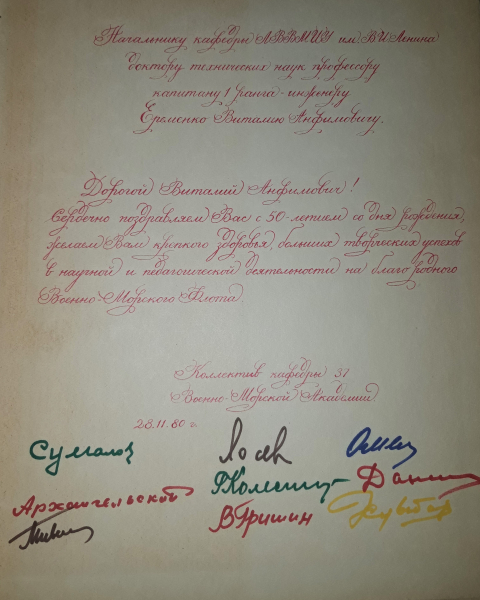 Начальнику кафедры ЛВВМИУ им В.И. Ленина
доктору технических наук профессору
капитану 1 ранга-инженеру
Еременко Виталию Анфимовичу.
Дорогой Виталий Анфимович!
Сердечно поздравляем Вас с 50-летием со дня рождения,
желаем Вам крепкого здоровья, больших творческих успехов
в научной и педагогической деятельности на благо родного
Военно-Морского Флота.
Коллектив кафедры 31
Военно-Морской Академии
28.11.80 г.
Архангельский
ВГришин